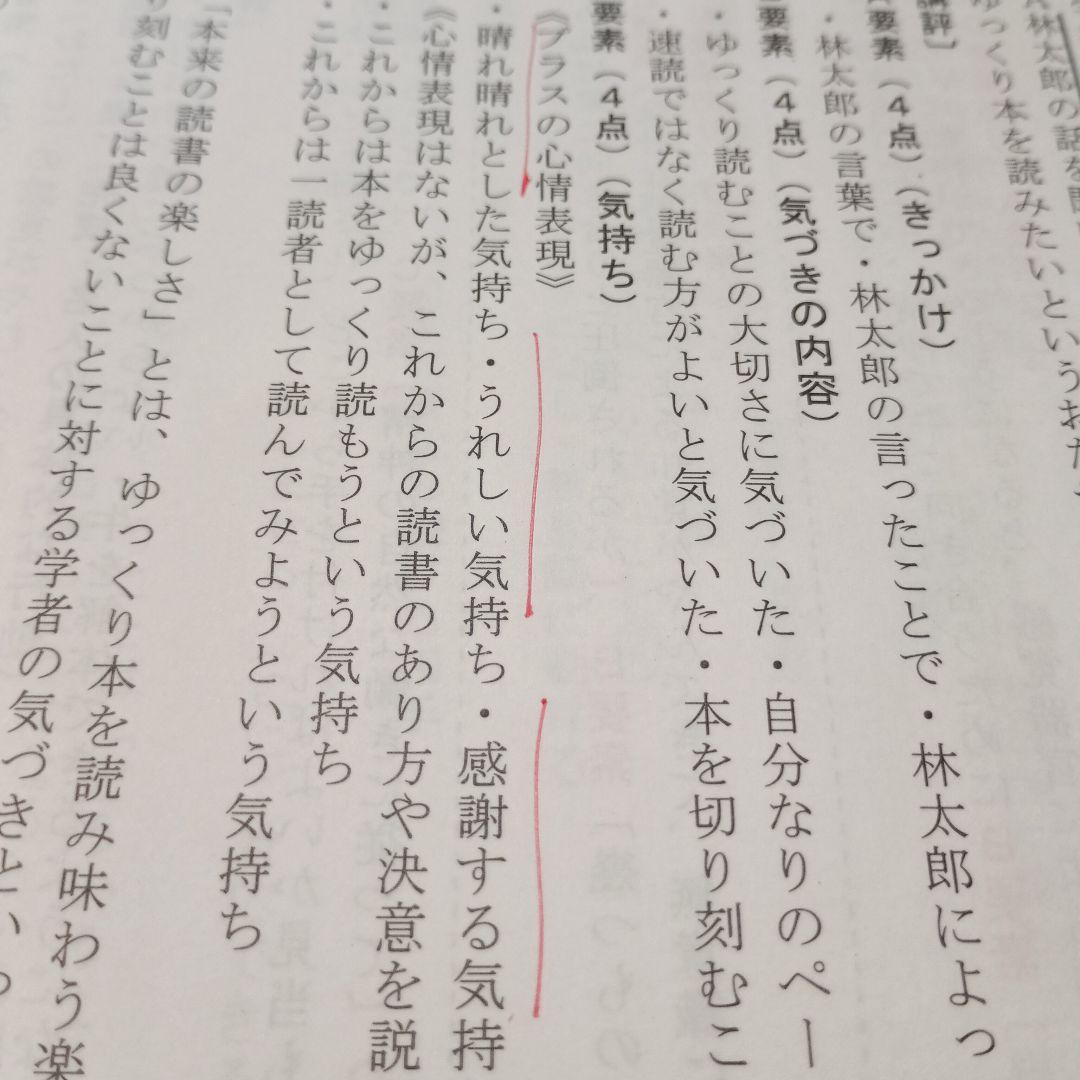 林太郎の話を聞
ゆっくり本を読みたいというおだ
講評］
要素（４点）（きっかけ）
・林太郎の言葉で・林太郎の言ったことで・林太郎によっ
要素（４点）（気づきの内容）
・ゆっくり読むことの大切さに気づいた・自分なりのペー
・速読ではなく読む方がよいと気づいた・本を切り刻むこ
要素（４点）（気持ち）
《プラスの心情表現》
・晴れ晴れとした気持ち・うれしい気持ち・感謝する気持
《心情表現はないが、これからの読書のあり方や決意を説
・これからは本をゆっくり読もうという気持ち
・これからは一読者として読んでみようという気持ち
「本来の読書の楽しさ」とは、ゆっくり本を読み味わう楽
り刻むことは良くないことに対する学者の気づきとい